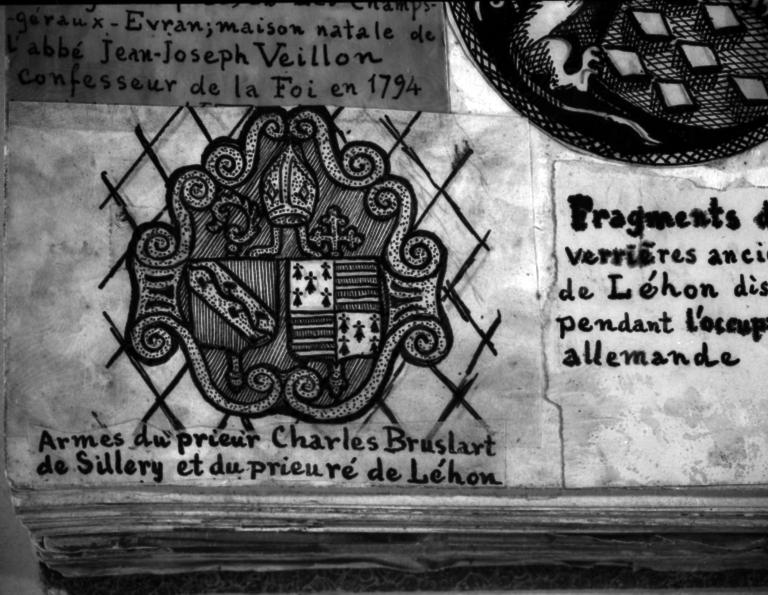 Champs-
géraux-Evran; maison natale de
l'abbé Jean-Joseph Veillon
confesseur de la Foi en 1794
Armes du prieur Charles Bruslart
de Sillery et du prieuré de Léhon
Fragments d
verrières anci
de Léhon dis
pendant l'occup
allemande